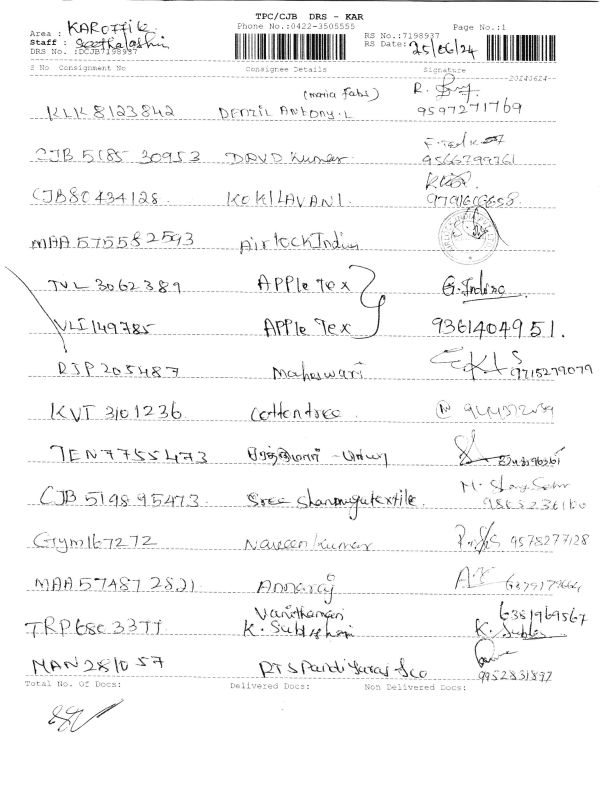 TPC/CJB DRS - KAR
Phone No.:0422-3505555
Page No.:1
Area : KAROFFICE
Staff :
DRS No. :DCJB7198937
RS No.:7198937
RS Date: 25/06/24
S No Consignment No Consignee Details Signature
20240624
(maria fabs)
KLK 8123842 DENZIL ANTONY.L 9597271769
CJB 5185 30953 DAVD Kumar 9566799761
CJB80434128 KOKILAVANI 9791603658
MAA 575582593 Airlock India
TVL 3062389 APPle Tex G. Indira
VLI149785 APPle Tex 9361404951.
RJP 205487 Maheswari 9715279079
KVT 3101236 Cottontree
TEN7755473
CJB 519895473 Sree Shanmugatextile.
GYM167272 Naveen Kumar 9578277128
MAA 57487 2821 Annaraj
Vanithamani 6381969567
TRP 680 3377 K. K.
NAN 281057 RTS Pandiyaraj &co 9952831897
Total No. Of Docs: Delivered Docs: Non Delivered Docs: